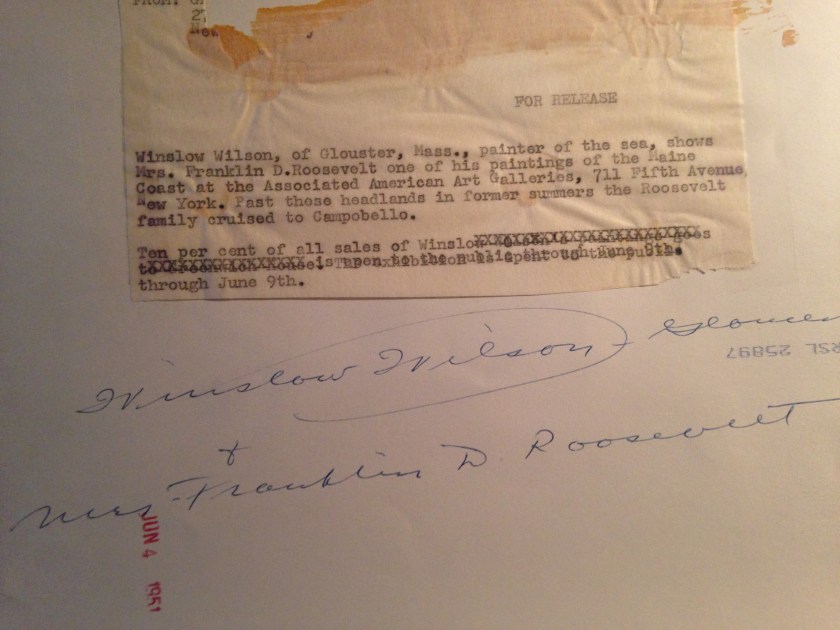 FROM:
2
New
FOR RELEASE
Winslow Wilson, of Glouster, Mass., painter of the sea, shows
Mrs. Franklin D.Roosevelt one of his paintings of the Maine
Coast at the Associated American Art Galleries, 711 Fifth Avenue
New York. Past these headlands in former summers the Roosevelt
family cruised to Campobello.
Ten per cent of all sales of Winslow goes
to is open to the public through June 9th.
through June 9th.
Winslow Wilson - Glouces
RSL 25897
+
Mrs Franklin D. Roosevelt
JUN 4 1951